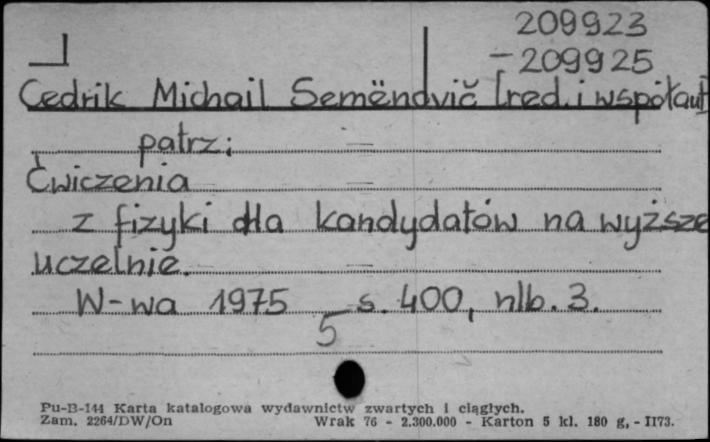 209923
- 209925
Cedrik Michail Semёnovič [red. i współaut]
patrz:
Ćwiczenia
z fizyki dla kandydatów na wyższe
uczelnie.
W-wa 1975 s. 400, nlb. 3.
5
Pu-B-144 Karta katalogowa wydawnictw zwartych i ciągłych.
Zam. 2264/DW/On Wrak 76 - 2.300.000 - Karton 5 kl. 180 g, - II73.